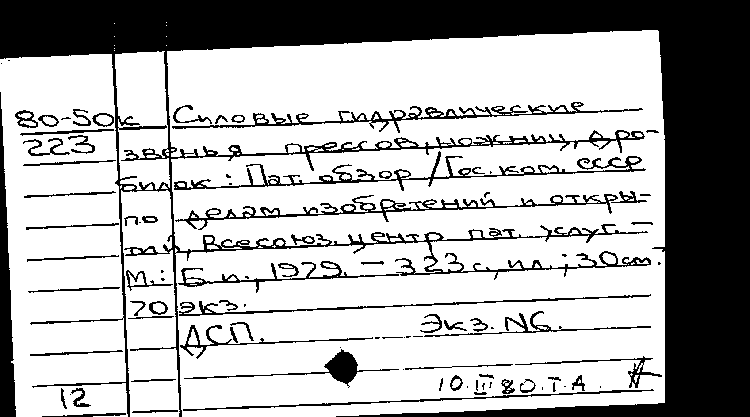 80-50к Силовые гидравлические
223 звенья прессов, ножниц, дро-
билок: Пат. обзор / Гос. ком. СССР
по делам изобретений и откры-
тий, Всесоюз. центр пат. услуг. –
М.: Б. и., 1979. – 323 с., ил.; 30 см. –
70 экз.
ДСП. Экз. N6.
12 10.III 80. Т.А.